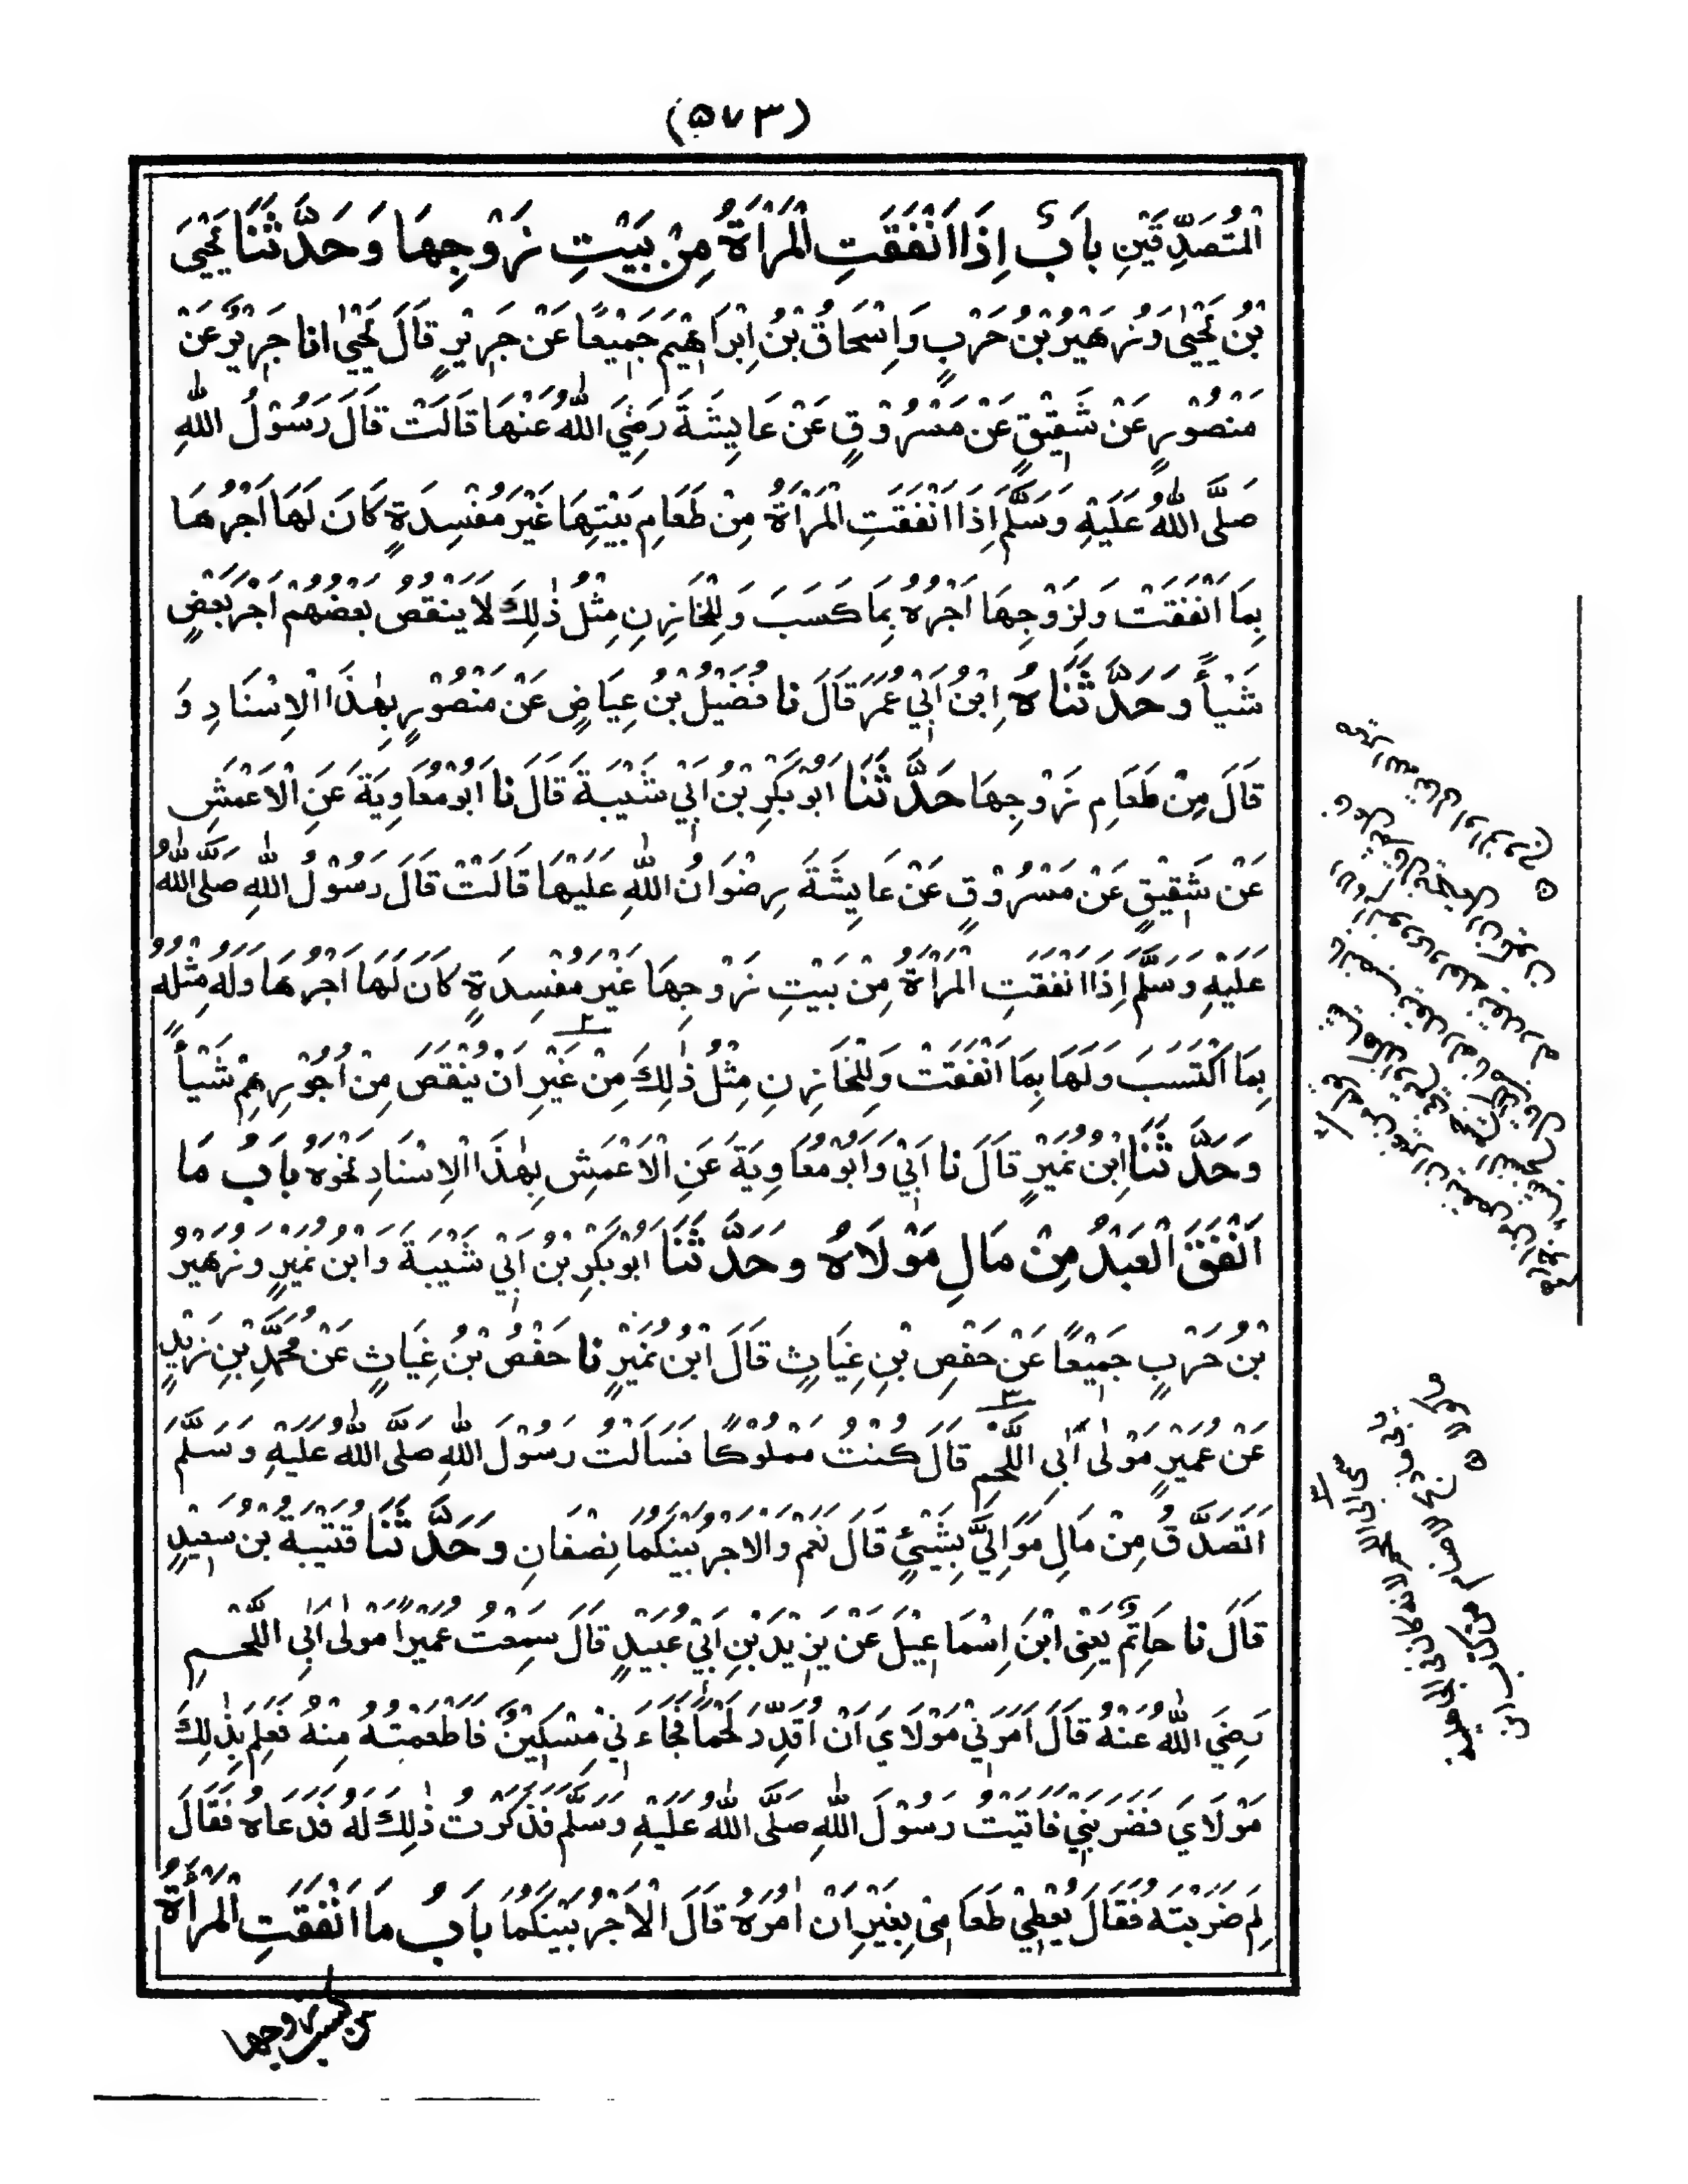 (۵۷۳)
الْمُتَصَدِّقَيْنِ بَابٌ اِذَا اَنْفَقَتِ الْمَرْاَةُ مِنْ بَيْتِ زَوْجِهَا وَحَدَّثَنَا يَحْيَى
بْنُ يَحْيٰى وَزُهَيْرُ بْنُ حَرْبٍ وَاِسْحَاقُ بْنُ اِبْرَاهِيْمَ جَمِيْعًا عَنْ جَرِيْرٍ قَالَ يَحْيٰى اَنا جَرِيْرٌ عَنْ
مَنْصُوْرٍ عَنْ شَقِيْقٍ عَنْ مَسْرُوْقٍ عَنْ عَايِشَةَ رَضِيَ اللّٰهُ عَنْهَا قَالَتْ قَالَ رَسُوْلُ اللّٰهِ
صَلَّى اللّٰهُ عَلَيْهِ وَسَلَّمَ اِذَا اَنْفَقَتِ الْمَرْاَةُ مِنْ طَعَامِ بَيْتِهَا غَيْرَ مُفْسِدَةٍ كَانَ لَهَا اَجْرُهَا
بِمَا اَنْفَقَتْ وَلِزَوْجِهَا اَجْرُهُ بِمَا كَسَبَ وَلِلْخَازِنِ مِثْلُ ذٰلِكَ لَا يَنْقُصُ بَعْضُهُمْ اَجْرَ بَعْضٍ
شَيْأً وَحَدَّثَنَاهُ اِبْنُ اَبِيْ عُمَرَ قَالَ نا فُضَيْلُ بْنُ عِيَاضٍ عَنْ مَنْصُوْرٍ بِهٰذَا الْاِسْنَادِ وَ
قَالَ مِنْ طَعَامِ زَوْجِهَا حَدَّثَنَا اَبُوْ بَكْرِ بْنُ اَبِيْ شَيْبَةَ قَالَ نا اَبُوْ مُعَاوِيَةَ عَنِ الْاَعْمَشِ
عَنْ شَقِيْقٍ عَنْ مَسْرُوْقٍ عَنْ عَايِشَةَ رِضْوَانُ اللّٰهِ عَلَيْهَا قَالَتْ قَالَ رَسُوْلُ اللّٰهِ صَلَّى اللّٰهُ
عَلَيْهِ وَسَلَّمَ اِذَا اَنْفَقَتِ الْمَرْأَةُ مِنْ بَيْتِ زَوْجِهَا غَيْرَ مُفْسِدَةٍ كَانَ لَهَا اَجْرُهَا وَلَهُ مِثْلُهُ
بِمَا اكْتَسَبَ وَلَهَا بِمَا اَنْفَقَتْ وَلِلْخَازِنِ مِثْلُ ذٰلِكَ مِنْ غَيْرِ اَنْ يَنْقُصَ مِنْ اُجُوْرِهِمْ شَيْأً
وَحَدَّثَنَا اِبْنُ نُمَيْرٍ قَالَ نا اَبِيْ وَاَبُوْ مُعَاوِيَةَ عَنِ الْاَعْمَشِ بِهٰذَا الْاِسْنَادِ نَحْوَهُ بَابُ مَا
اَنْفَقَ الْعَبْدُ مِنْ مَالِ مَوْلَاهُ وَحَدَّثَنَا اَبُوْ بَكْرِ بْنُ اَبِيْ شَيْبَةَ وَابْنُ نُمَيْرٍ وَزُهَيْرُ
بْنُ حَرْبٍ جَمِيْعًا عَنْ حَفْصِ بْنِ غِيَاثٍ قَالَ ابْنُ نُمَيْرٍ نا حَفْصُ بْنُ غِيَاثٍ عَنْ مُحَمَّدِ بْنِ زَيْدٍ
عَنْ عُمَيْرٍ مَوْلٰى اٰبِى اللَّحْمِ قَالَ كُنْتُ مَمْلُوْكًا فَسَاَلْتُ رَسُوْلَ اللّٰهِ صَلَّى اللّٰهُ عَلَيْهِ وَسَلَّمَ
اَتَصَدَّقُ مِنْ مَالِ مَوَالِيَّ بِشَيْئٍ قَالَ نَعَمْ وَالْاَجْرُ بَيْنَكُمَا نِصْفَانِ وَحَدَّثَنَا قُتَيْبَةُ بْنُ سَعِيْدٍ
قَالَ نا حَاتِمٌ يَعْنِى ابْنَ اِسْمَاعِيْلَ عَنْ يَزِيْدَ بْنِ اَبِيْ عُبَيْدٍ قَالَ سَمِعْتُ عُمَيْرًا مَوْلٰى اٰبِى اللَّحْمِ
رَضِيَ اللّٰهُ عَنْهُ قَالَ اَمَرَنِيْ مَوْلَايَ اَنْ اُقَدِّدَ لَحْمًا فَجَاءَنِيْ مِسْكِيْنٌ فَاَطْعَمْتُهُ مِنْهُ فَعَلِمَ بِذٰلِكَ
مَوْلَايَ فَضَرَبَنِيْ فَاَتَيْتُ رَسُوْلَ اللّٰهِ صَلَّى اللّٰهُ عَلَيْهِ وَسَلَّمَ فَذَكَرْتُ ذٰلِكَ لَهُ فَدَعَاهُ فَقَالَ
لِمَ ضَرَبْتَهُ فَقَالَ يُعْطِيْ طَعَامِىْ بِغَيْرِ اَنْ اٰمُرَهُ قَالَ الْاَجْرُ بَيْنَكُمَا بَابُ مَا اَنْفَقَتِ الْمَرْأَةُ
من كسب زوجها